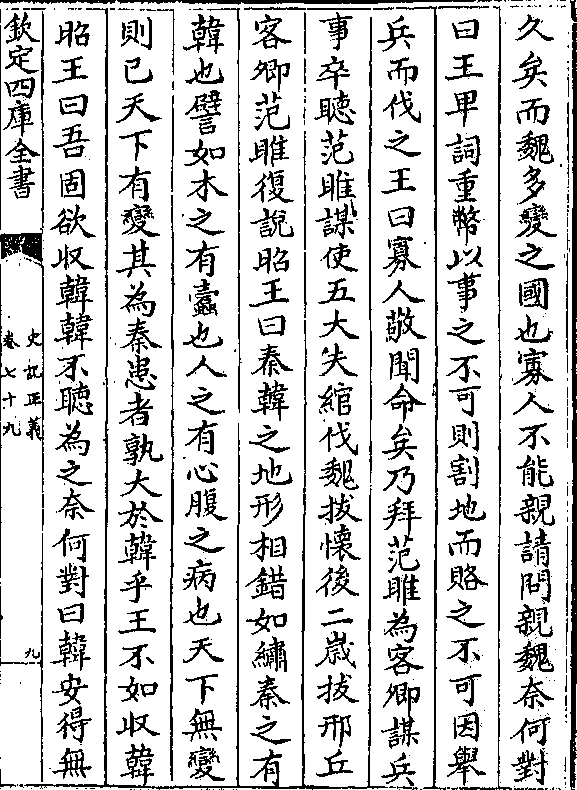 久矣而魏多變之國也寡人不能親請問親魏奈何對
曰王卑詞重幣以事之不可則割地而賂之不可因舉
兵而伐之王曰寡人敬聞命矣乃拜范雎為客卿謀兵
事卒聽范雎謀使五大夫綰伐魏拔懷後二嵗拔邢丘
客卿范雎復說昭王曰秦韓之地形相錯如繡秦之有
韓也譬如木之有蠧也人之有心腹之病也天下無變
則已天下有變其為秦患者孰大於韓乎王不如収韓
昭王曰吾固欲収韓韓不聽為之奈何對曰韓安得無
欽定四庫全書
史記正義
卷七十九
九